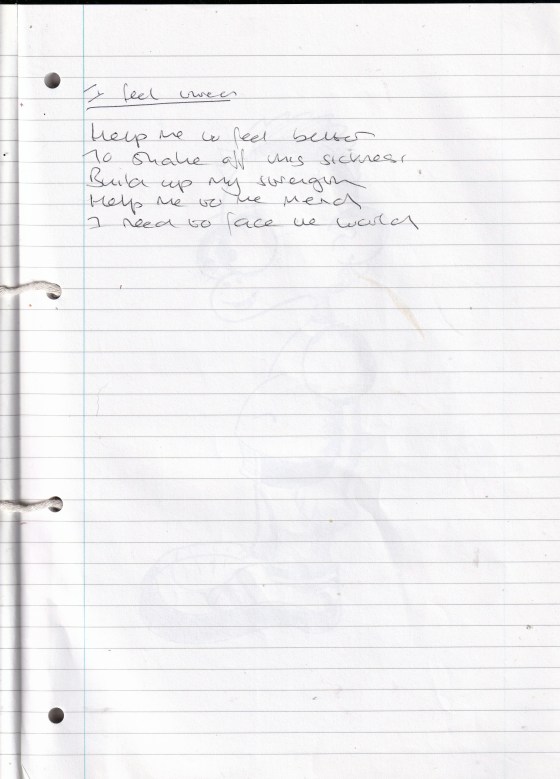 I feel
Help me to feel better
To shake off this sickness
Build up my strength
Help me to the mend
I need to face the world